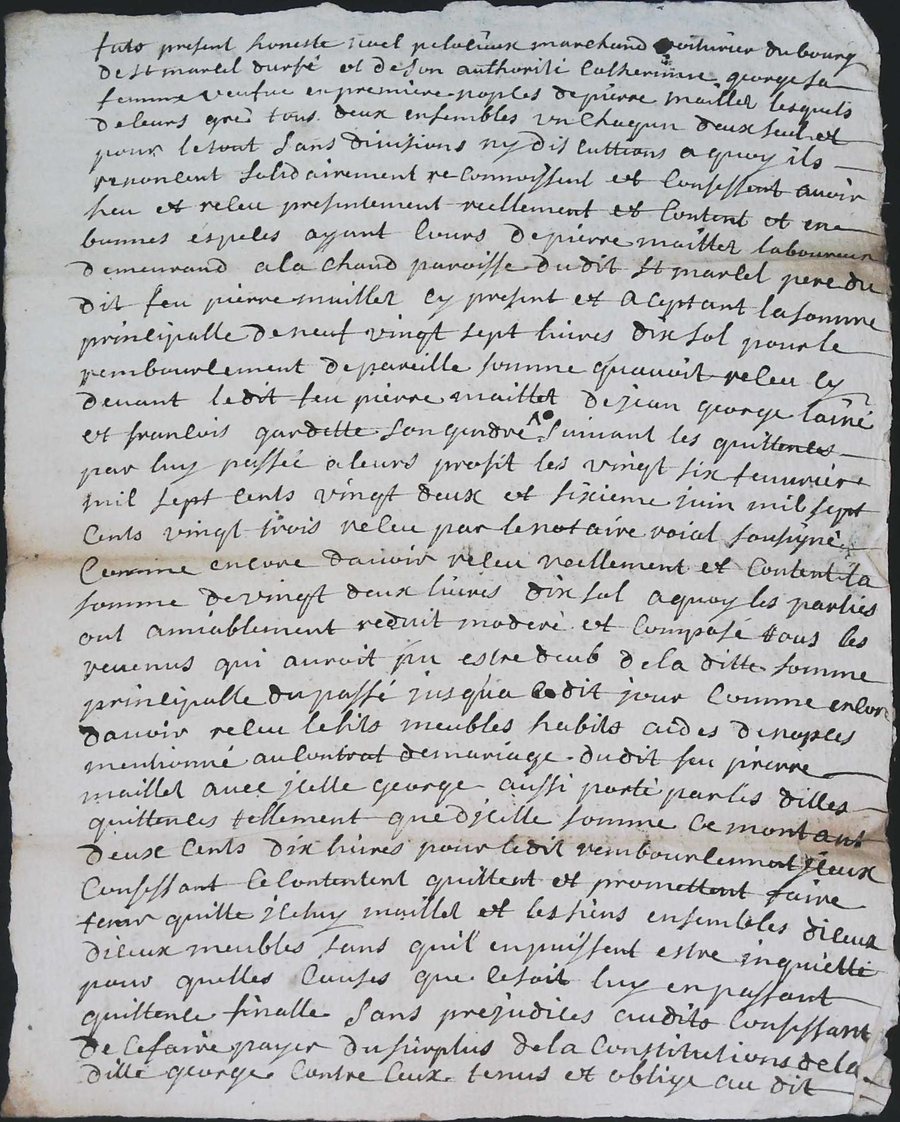 futs present honeste noel pelocieux marchand voiturier du bourg
de st marcel durfé et de son authorité Catherinne george sa
femme veufue en premiere nopces de pierre maillet lesquels
de leurs gré tous deux ensembles un chaqun deux seul et
pour le tout sans divisions ny discuttions a quoy ils
renoncent solidairement reconnoissent et Confessent auoir
heu et receu presentement reellement et Content et en
bonnes especes ayant Cours de pierre maillet laboureur
demeurand a la Chand paroisse dudit st marcel pere du
dit feu pierre maillet cy present et aceptant la somme
principalle de neuf vingt sept liures dix sol pour le
remboursement de pareille somme quauoit receu cy
deuant ledit feu pierre maillet de jean george lainé
et francois gardette son gendre suiuant les quittences
par luy passée a leurs profit les vingt six feuurier
mil sept cents vingt deux et sixieme juin mil sept
Cents vingt trois receu par le notaire roial sousigné
Comme encore dauoir receu reellement et Content la
somme de vingt deux liures dix sol a quoy les parties
ont amiablement reduit moderé et Composé tous les
reuenus qui auroit pu estre deub de la ditte somme
principalle du passé jusqua cedit jour Comme encor
dauoir receu lesits meubles habits aides de nopces
mentionné au Contrat de mariage dudit feu pierre
maillet auec jcelle george aussi porté par les dittes
quittences tellement que djcelle somme ce montant
deux Cents dix liures pour ledit remboursement jceux
Confessant ce Contentent quittent et promettent faire
tenir quitte jceluy maillet et les siens ensembles diceux
diceux meubles sans quil en puissent estre inquietté
pour quelles Causes que ce soit luy en passant
quittence finalle sans prejudices audits Confessant
de ce faire payer du surplus de la Constitutions de la
ditte george Contre Ceux tenus et oblige au dit